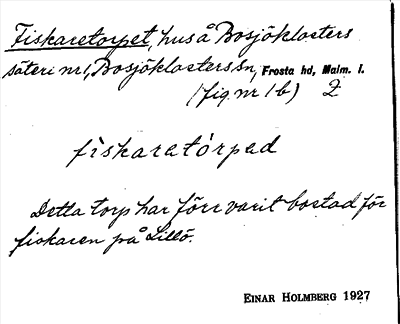 Fiskaretorpet, hus å Bosjöklosters
säteri nr 1, Bosjöklosters sn, Frosta hd, Malm. l.
(fig. nr 1 b) Z
fiskaretórped
Detta torp har förr varit bostad för
fiskaren på Lillö.
EINAR HOLMBERG 1927